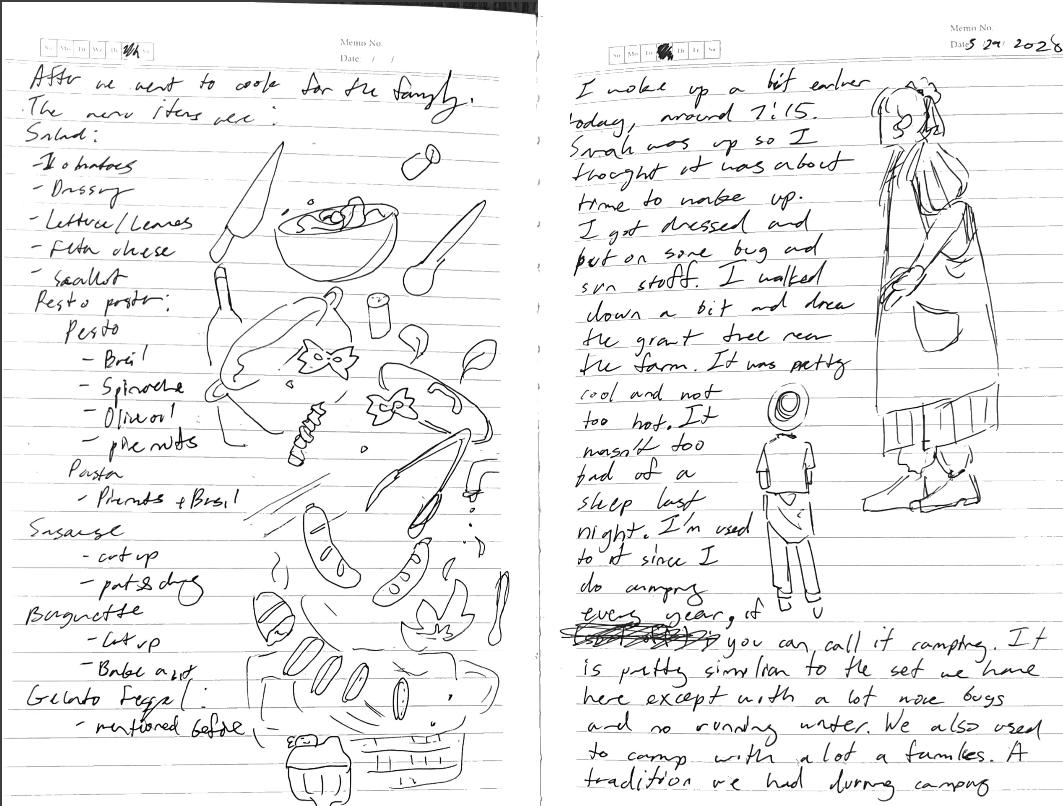 Su Mo Tu We Th Sa
Memo No.
Date / /
After we went to cook for the family.
The menu items were:
Salad:
- Tomatoes
- Dressing
- Lettuce/Leaves
- Feta cheese
- scallot
Pesto pasta:
Pesto
- Basil
- Spinache
- Olive oil
- pine nuts
Pasta
- Pinenuts + Basil
Sausauge
- cut up
- pat & dry
Baguette
- Cut up
- Bake a bit
Gelato
- mentioned before
Su Mo Tu Th Fr Sa
Memo No.
Date 5 29 2026
I woke up a bit earlier
today, around 7:15.
Sarah was up so I
thought it was about
time to wake up.
I got dressed and
put on some bug and
sun stuff. I walked
down a bit and drew
the giant tree near
the farm. It was pretty
cool and not
too hot. It
wasn't too
bad of a
sleep last
night. I'm used
to it since I
do camping
every year, if
you can call it camping. It
is pretty similar to the set we have
here except with a lot more bugs
and no running water. We also used
to camp with a lot a families. A
tradition we had during camping